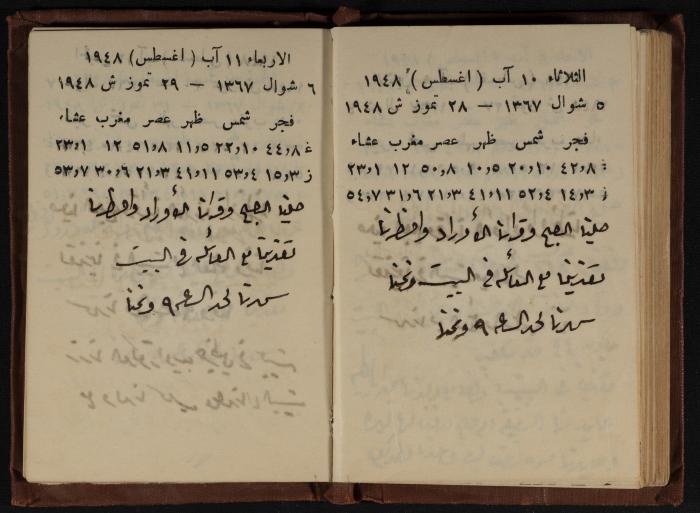 الثلاثاء ١٠ آب ( اغسطس ) ١٩٤٨
٥ شوال ١٣٦٧ — ٢٨ تموز ش ١٩٤٨
فجر شمس ظهر عصر مغرب عشاء
غ ٨٫٤٢ ١٠٫٢٠ ٥٫١٠ ٨٫٥٠ ١٢ ١٫٢٣
ز ٣٫١٤ ٤٫٥٢ ١١٫٤١ ٣٫٢١ ٦٫٣١ ٧٫٥٤
صلينا الصبح وقرانا الأوراد وافطرنا
تغذينا مع العائله في البيت ونمنا
سهرنا لحد الساعه ٩ ونمنا
الاربعاء ١١ آب ( اغسطس ) ١٩٤٨
٦ شوال ١٣٦٧ — ٢٩ تموز ش ١٩٤٨
فجر شمس ظهر عصر مغرب عشاء
غ ٨٫٤٤ ١٠٫٢٢ ٥٫١١ ٨٫٥١ ١٢ ١٫٢٣
ز ٣٫١٥ ٤٫٥٣ ١١٫٤١ ٣٫٢١ ٦٫٣٠ ٧٫٥٣
صلينا الصبح وقرانا الأوراد وافطرنا
تغذينا مع العائله في البيت
سهرنا لحد الساعه ٩ ونمنا